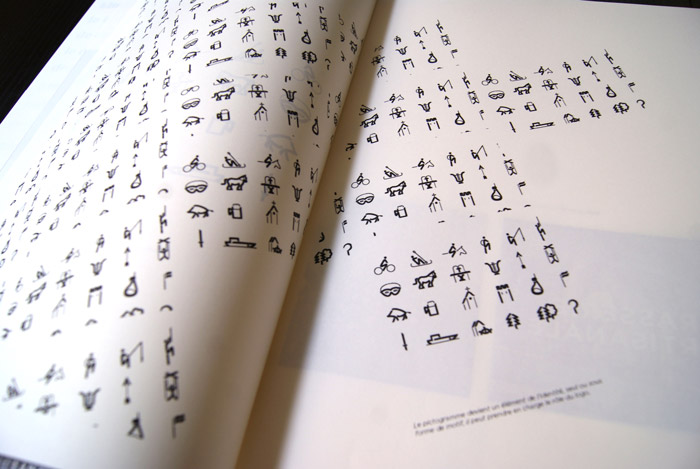 ?
?
?
Le pictogramme devient un élément de l'identité, seul ou sous
forme de motif, il peut prendre en charge le rôle du logo.